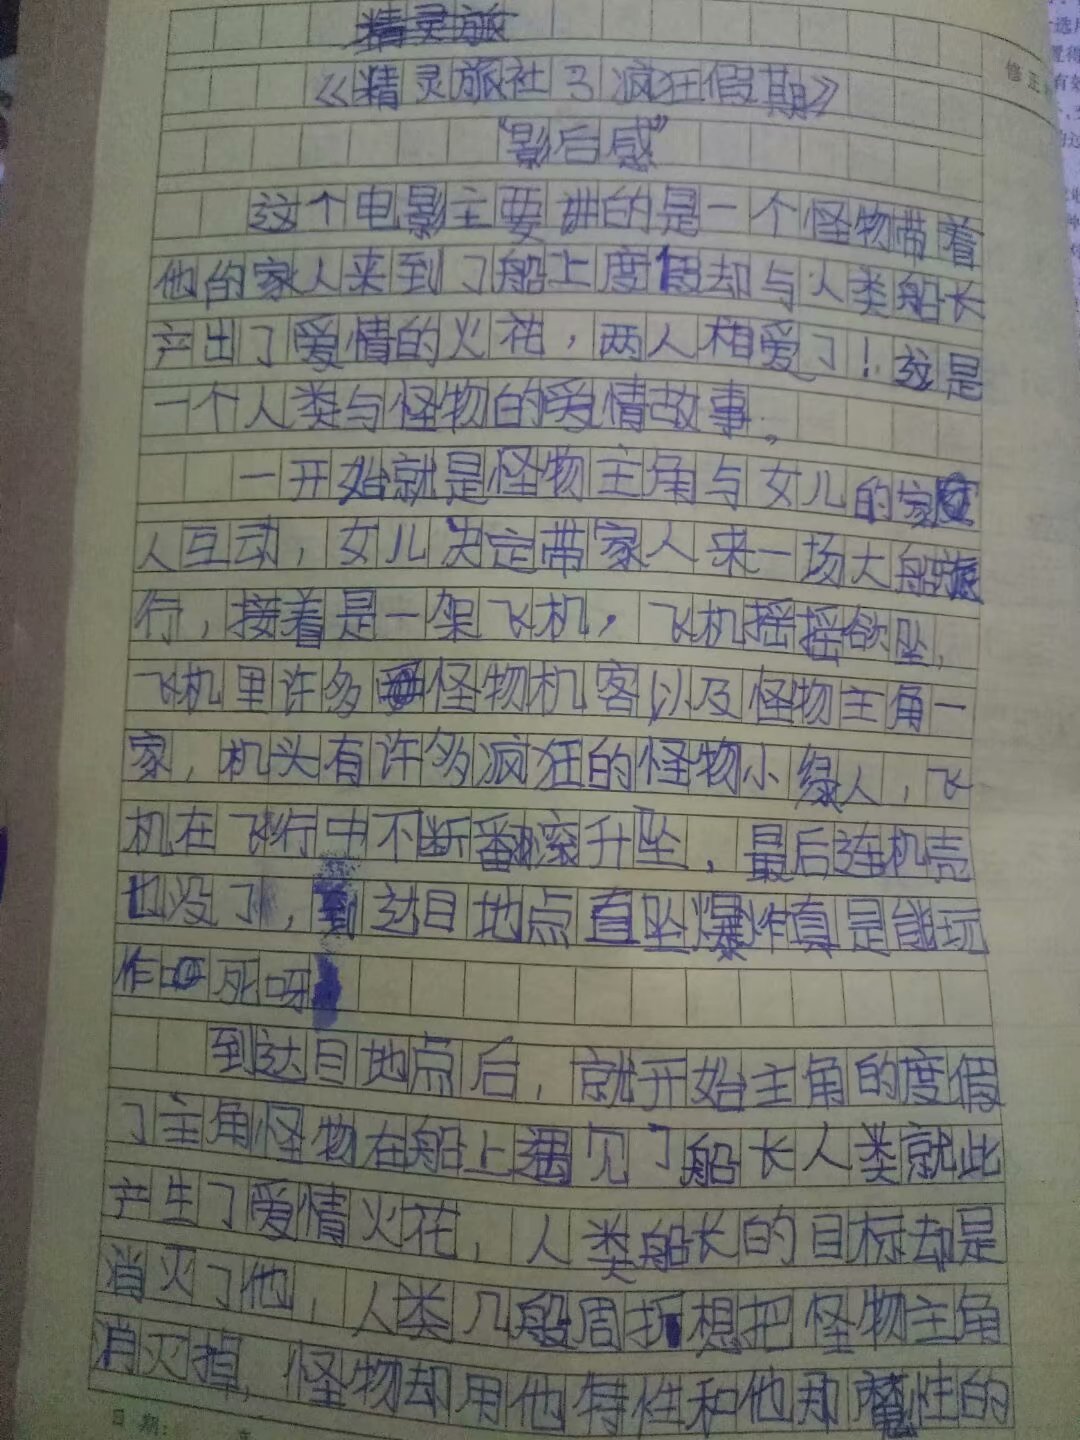 精灵旅
《精灵旅社3疯狂假期》
"影后感"
这个电影主要讲的是一个怪物带着
他的家人来到了船上度假却与人类船长
产出了爱情的火花，两人相爱了！这是
一个人类与怪物的爱情故事。
一开始就是怪物主角与女儿的家
人互动，女儿决定带家人来一场大船旅
行，接着是一架飞机，飞机摇摇欲坠，
飞机里许多怪物机客以及怪物主角一
家，机头有许多疯狂的怪物小绿人，飞
机在飞行中不断翻滚升坠，最后连机壳
也没了，到达目地点直坠爆炸真是能玩
作死呀
到达目地点后，就开始主角的度假
了主角怪物在船上遇见了船长人类就此
产生了爱情火花，人类船长的目标却是
消灭了他，人类几般周折想把怪物主角
消灭掉，怪物却用他特性和他那魔性的
日期：
修正